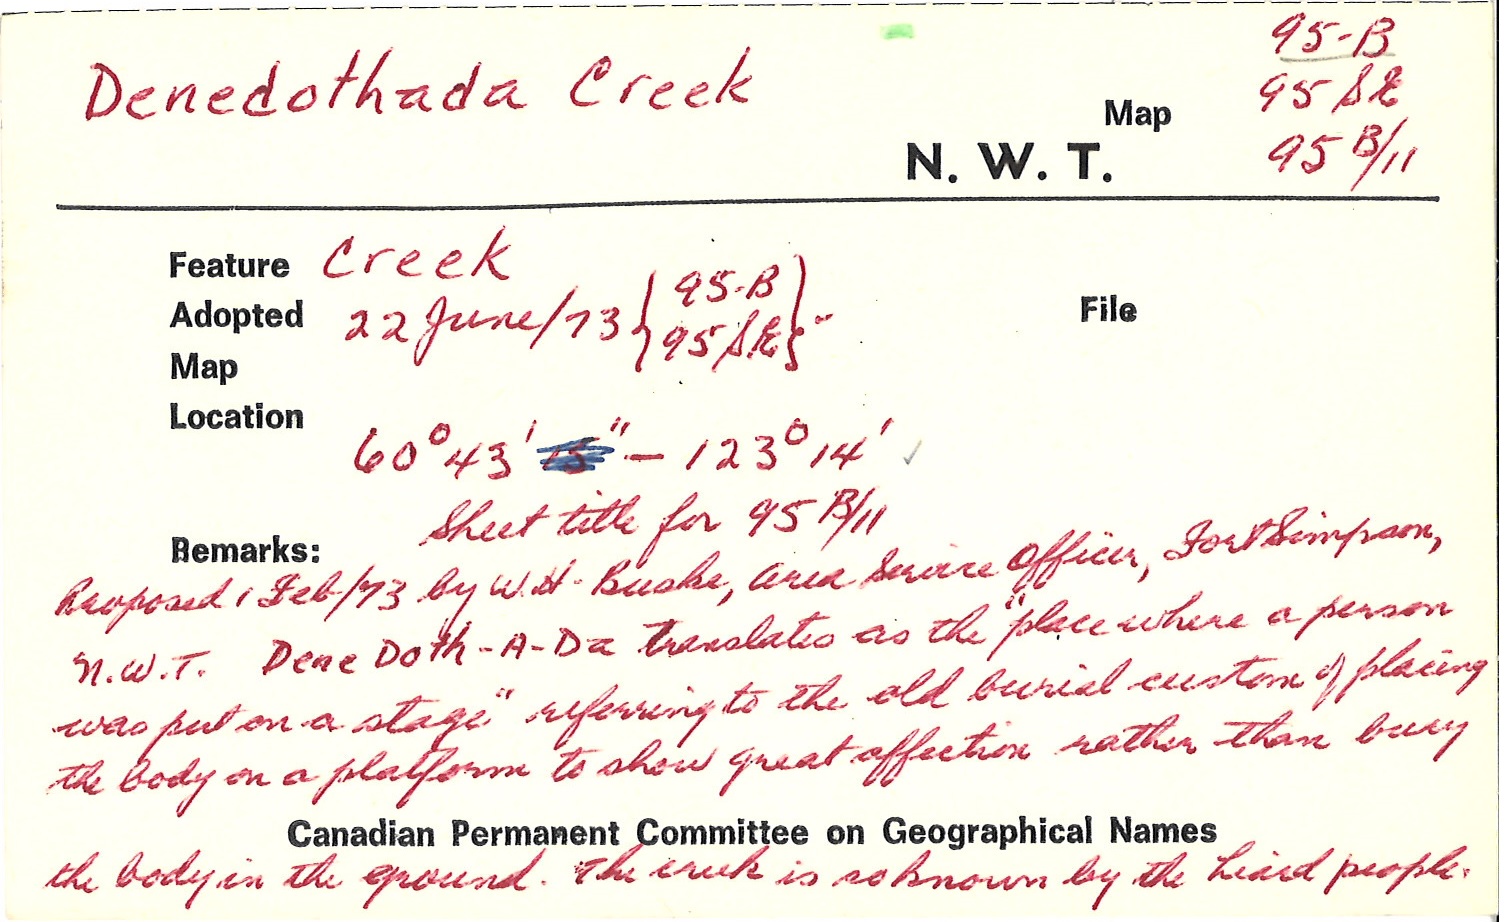 95-B
Denedothada Creek
95 SE
Map
N. W. T.
95 B/11
Feature Creek
Adopted 22 June/73 { 95-B 95 SE } "
File
Map
Location
60° 43' " - 123° 14' ✓
Sheet title for 95 B/11
Remarks:
Proposed 1 Feb/73 by W.H. Buske, Area Service Officer, Fort Simpson,
N.W.T. Dene Doth-A-Da translates as the "place where a person
was put on a stage" referring to the old burial custom of placing
the body on a platform to show great affection rather than bury
Canadian Permanent Committee on Geographical Names
the body in the ground. The creek is so known by the Liard people.